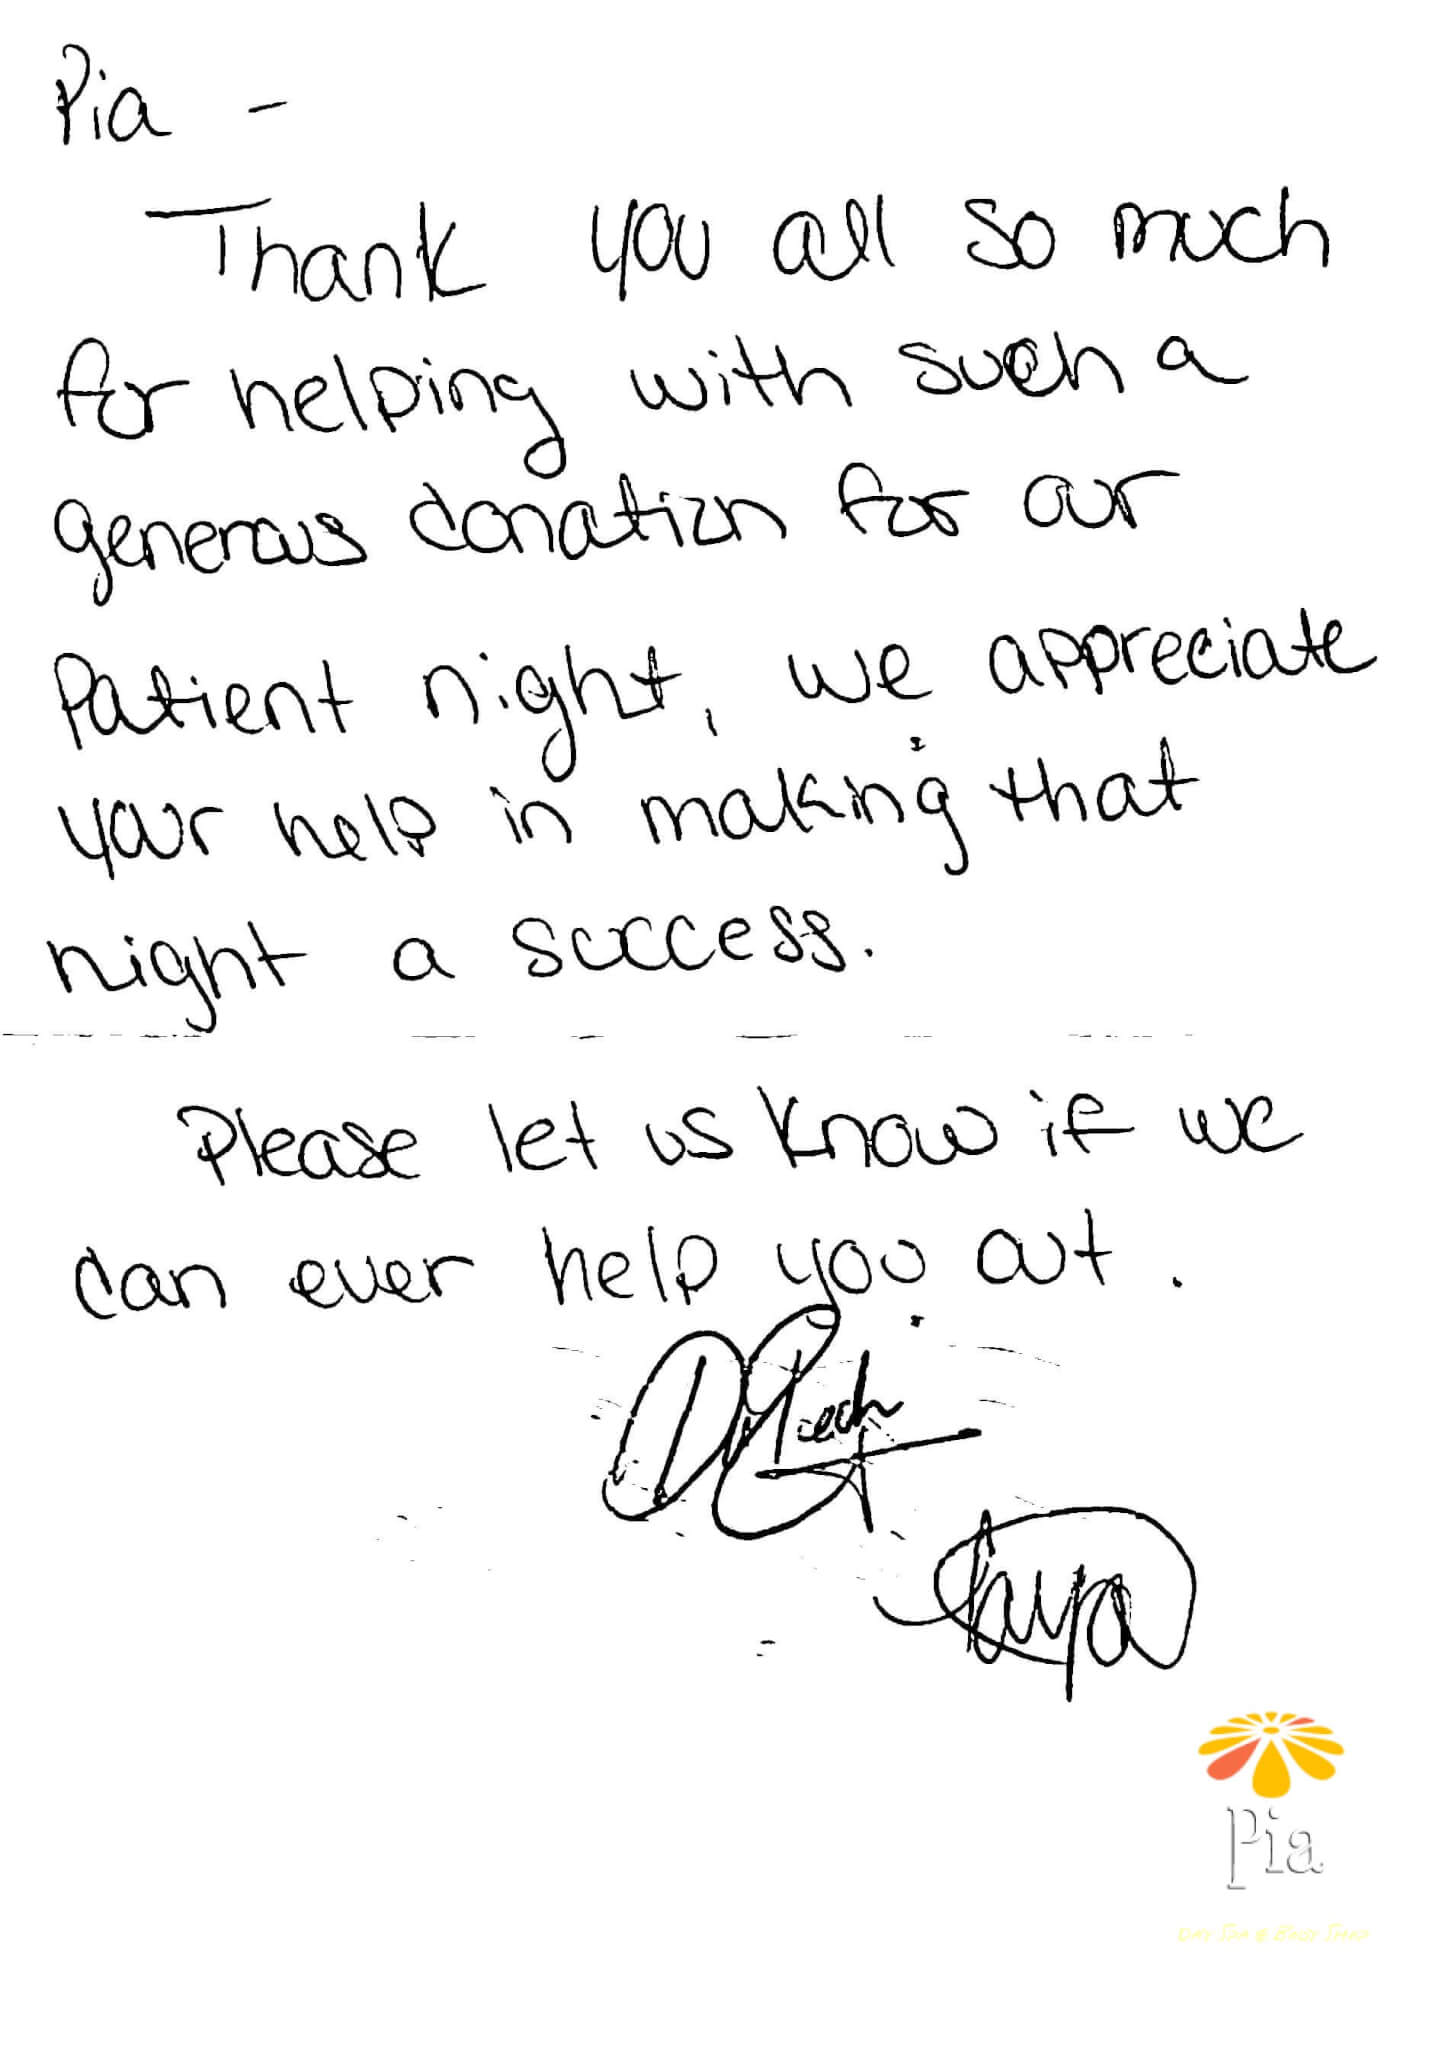 Pia -
Thank you all so much
for helping with such a
generous donation for our
Patient night, we appreciate
your help in making that
night a success.
Please let us know if we
can ever help you out.
Pia
Day Spa & Body Shop